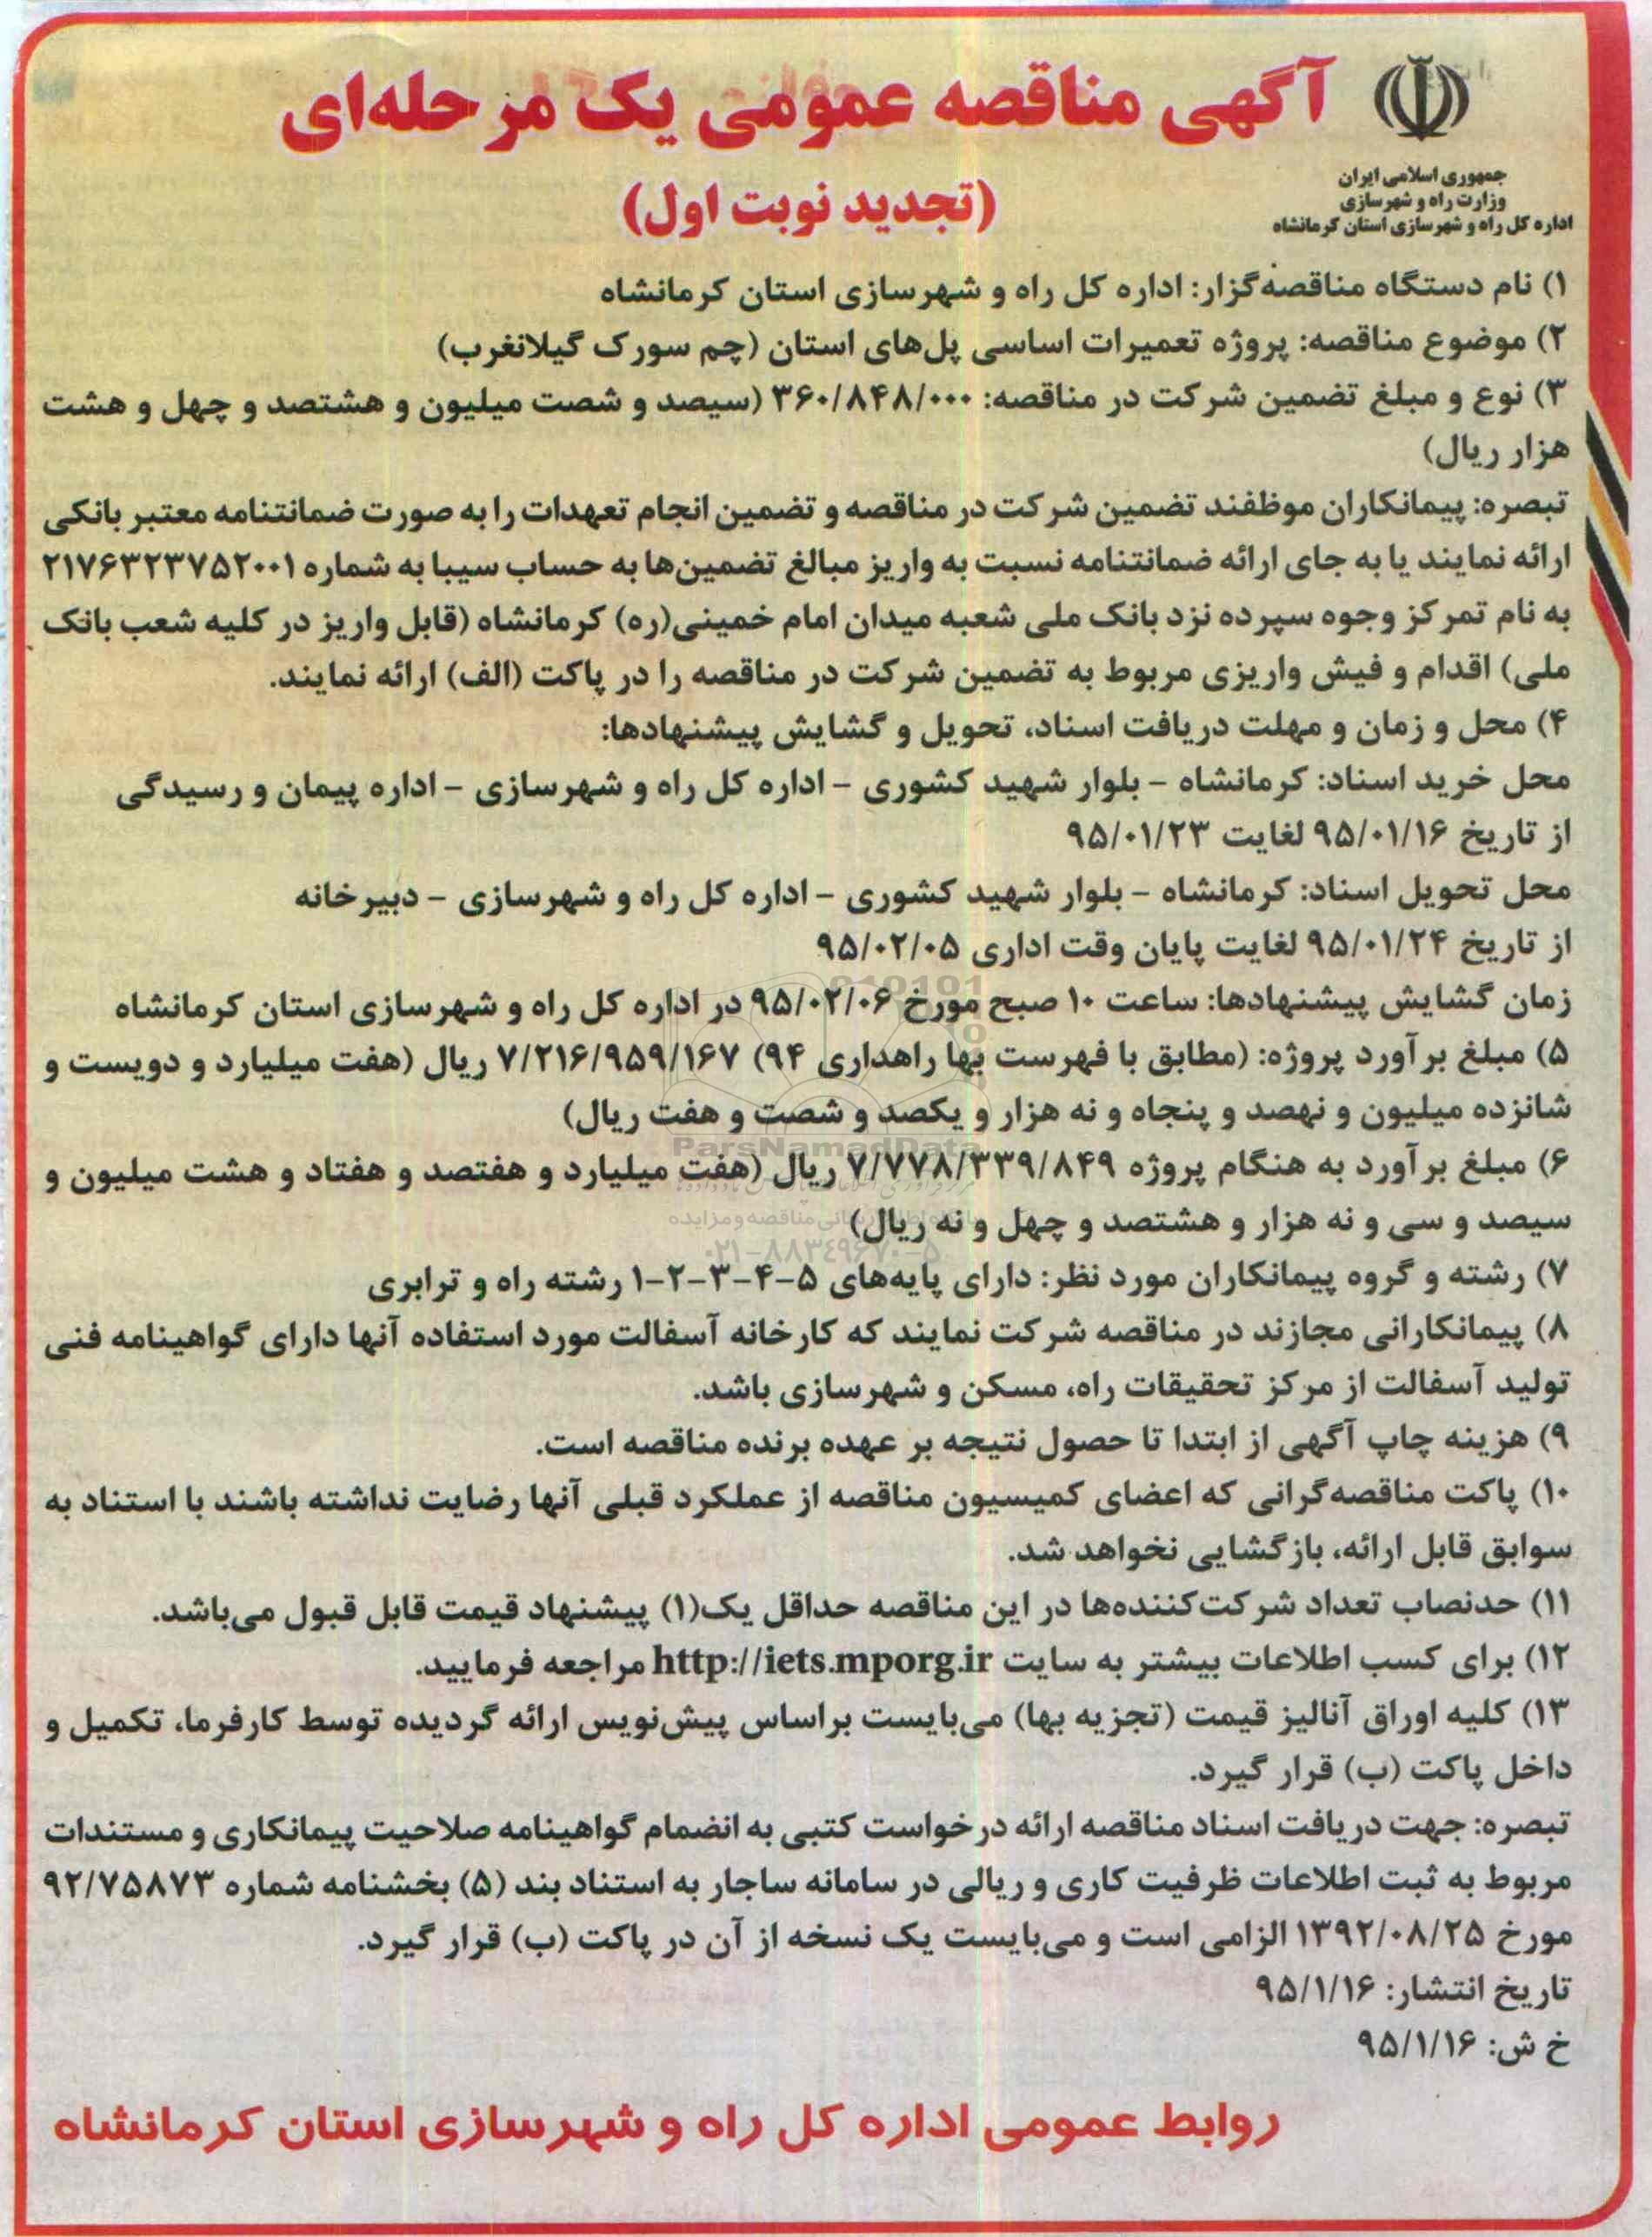 آگهی مناقصه عمومی یک مرحله‌ای
(تجدید نوبت اول)
جمهوری اسلامی ایران
وزارت راه و شهرسازی
اداره کل راه و شهرسازی استان کرمانشاه
۱) نام دستگاه مناقصه‌گزار: اداره کل راه و شهرسازی استان کرمانشاه
۲) موضوع مناقصه: پروژه تعمیرات اساسی پل‌های استان (چم سورک گیلانغرب)
۳) نوع و مبلغ تضمین شرکت در مناقصه: ۳۶۰/۸۴۸/۰۰۰ (سیصد و شصت میلیون و هشتصد و چهل و هشت
هزار ریال)
تبصره: پیمانکاران موظفند تضمین شرکت در مناقصه و تضمین انجام تعهدات را به صورت ضمانتنامه معتبر بانکی
ارائه نمایند یا به جای ارائه ضمانتنامه نسبت به واریز مبالغ تضمین‌ها به حساب سیبا به شماره ۲۱۷۶۳۲۳۷۵۲۰۰۱
به نام تمرکز وجوه سپرده نزد بانک ملی شعبه میدان امام خمینی(ره) کرمانشاه (قابل واریز در کلیه شعب بانک
ملی) اقدام و فیش واریزی مربوط به تضمین شرکت در مناقصه را در پاکت (الف) ارائه نمایند.
۴) محل و زمان و مهلت دریافت اسناد، تحویل و گشایش پیشنهادها:
محل خرید اسناد: کرمانشاه – بلوار شهید کشوری – اداره کل راه و شهرسازی – اداره پیمان و رسیدگی
از تاریخ ۹۵/۰۱/۱۶ لغایت ۹۵/۰۱/۲۳
محل تحویل اسناد: کرمانشاه – بلوار شهید کشوری – اداره کل راه و شهرسازی – دبیرخانه
از تاریخ ۹۵/۰۱/۲۴ لغایت پایان وقت اداری ۹۵/۰۲/۰۵
زمان گشایش پیشنهادها: ساعت ۱۰ صبح مورخ ۹۵/۰۲/۰۶ در اداره کل راه و شهرسازی استان کرمانشاه
۵) مبلغ برآورد پروژه: (مطابق با فهرست بها راهداری ۹۴) ۷/۲۱۶/۹۵۹/۱۶۷ ریال (هفت میلیارد و دویست و
شانزده میلیون و نهصد و پنجاه و نه هزار و یکصد و شصت و هفت ریال)
ParsNamadData
۶) مبلغ برآورد به هنگام پروژه ۷/۷۷۸/۳۳۹/۸۴۹ ریال (هفت میلیارد و هفتصد و هفتاد و هشت میلیون و
سیصد و سی و نه هزار و هشتصد و چهل و نه ریال)
۰۲۱-۸۸۳۴۹۶۷۰-۵
۷) رشته و گروه پیمانکاران مورد نظر: دارای پایه‌های ۵-۴-۳-۲-۱ رشته راه و ترابری
۸) پیمانکارانی مجازند در مناقصه شرکت نمایند که کارخانه آسفالت مورد استفاده آنها دارای گواهینامه فنی
تولید آسفالت از مرکز تحقیقات راه، مسکن و شهرسازی باشد.
۹) هزینه چاپ آگهی از ابتدا تا حصول نتیجه بر عهده برنده مناقصه است.
۱۰) پاکت مناقصه‌گرانی که اعضای کمیسیون مناقصه از عملکرد قبلی آنها رضایت نداشته باشند با استناد به
سوابق قابل ارائه، بازگشایی نخواهد شد.
۱۱) حدنصاب تعداد شرکت‌کننده‌ها در این مناقصه حداقل یک(۱) پیشنهاد قیمت قابل قبول می‌باشد.
۱۲) برای کسب اطلاعات بیشتر به سایت http://iets.mporg.ir مراجعه فرمایید.
۱۳) کلیه اوراق آنالیز قیمت (تجزیه بها) می‌بایست براساس پیش‌نویس ارائه گردیده توسط کارفرما، تکمیل و
داخل پاکت (ب) قرار گیرد.
تبصره: جهت دریافت اسناد مناقصه ارائه درخواست کتبی به انضمام گواهینامه صلاحیت پیمانکاری و مستندات
مربوط به ثبت اطلاعات ظرفیت کاری و ریالی در سامانه ساجار به استناد بند (۵) بخشنامه شماره ۹۲/۷۵۸۷۳
مورخ ۱۳۹۲/۰۸/۲۵ الزامی است و می‌بایست یک نسخه از آن در پاکت (ب) قرار گیرد.
تاریخ انتشار: ۹۵/۱/۱۶
خ ش: ۹۵/۱/۱۶
روابط عمومی اداره کل راه و شهرسازی استان کرمانشاه